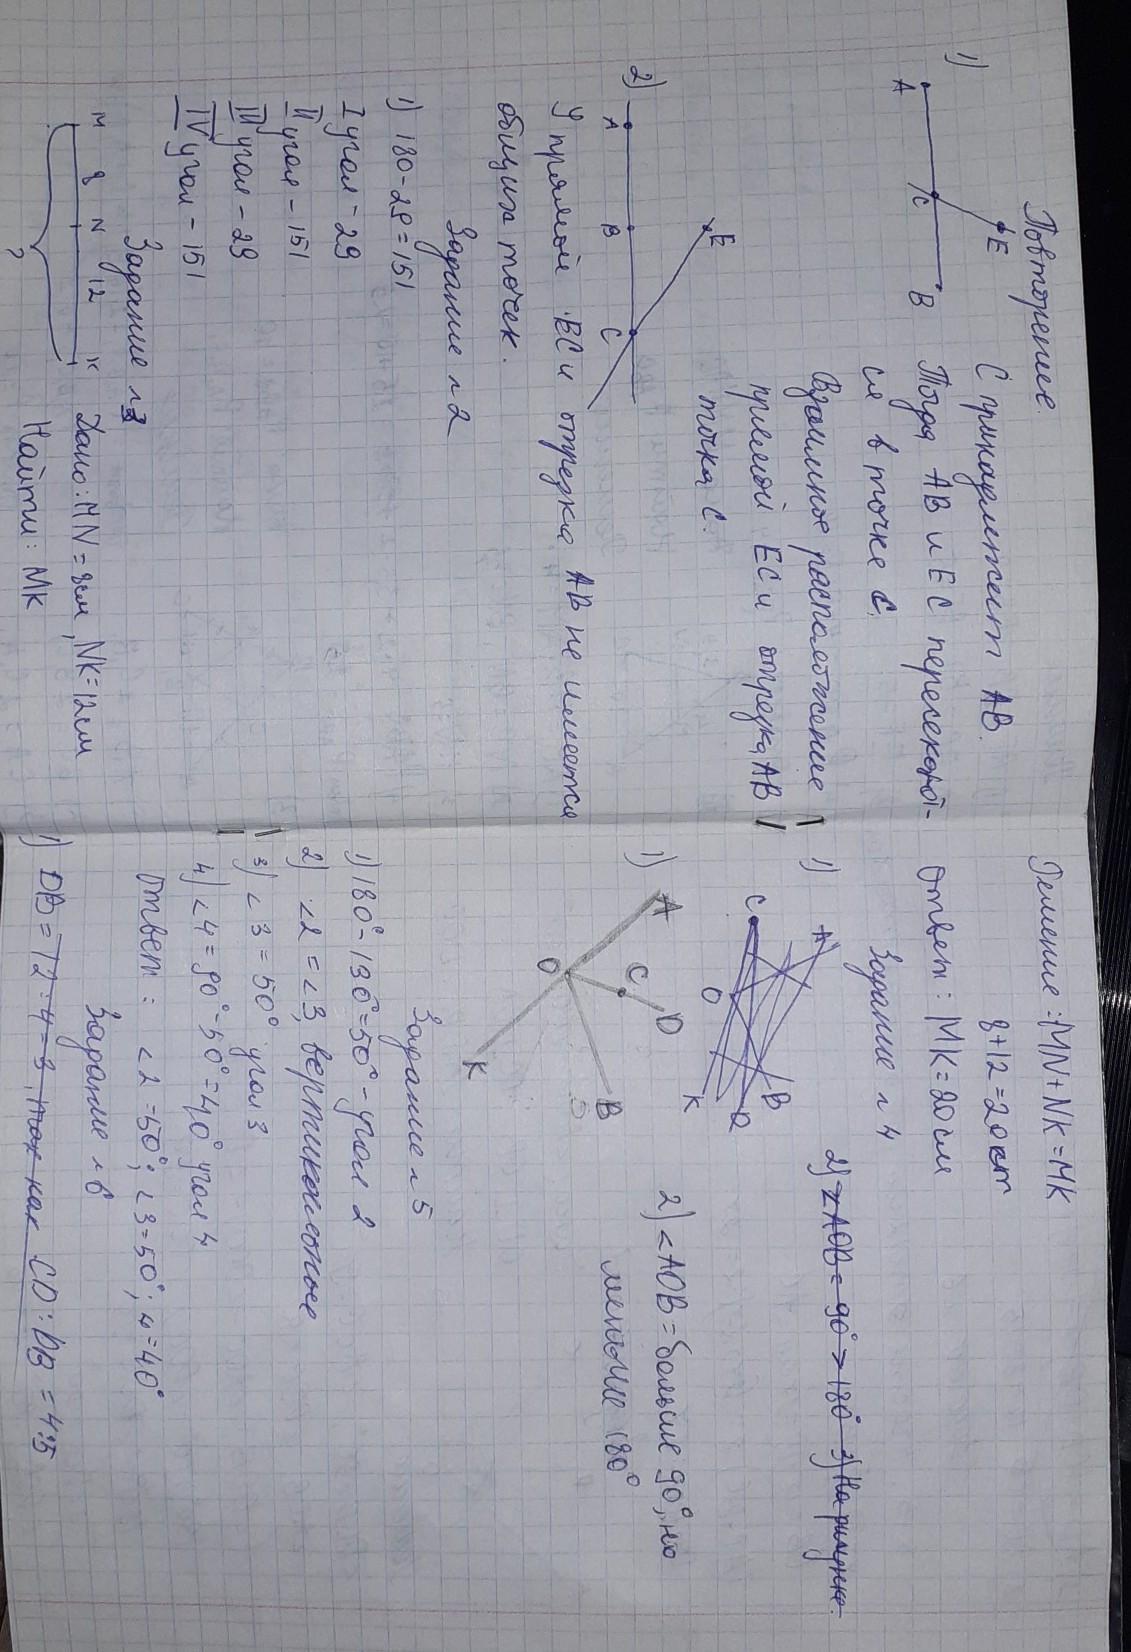 Повторение.
1)
A
C
B
E
С принадлежит AB.
Тогда AB и EC пересекают-
ся в точке C.
Взаимное расположение
прямой EC и отрезка AB
точка C.
2)
A
B
C
E
У прямой EC и отрезка AB не имеется
общих точек.
Задание n 2
1) 180-29=151
I угол - 29
II угол - 151
III угол - 29
IV угол - 151
Задание n 3
M 8 N 12 K
?
Дано: MN = 8см, NK=12см
Найти: MK
Решение: MN+NK=MK
8+12=20см
Ответ: MK=20см
Задание n 4
1)
A
C
O
B
D
K
2) ∠AOB = 90° > 180° 3) На рисунке.
1)
A
O
C
D
B
K
2) <AOB = больше 90°, но
меньше 180°
Задание n 5
1) 180°-130°=50° - угол 2
2) <2 = <3, вертикальные
3) <3 = 50° угол 3
4) <4 = 90°-50°=40° угол 4
Ответ: <2=50°; <3=50°; 4=40°
Задание n 6
1) DB = 12:4=3, так как CD:DB = 4:5